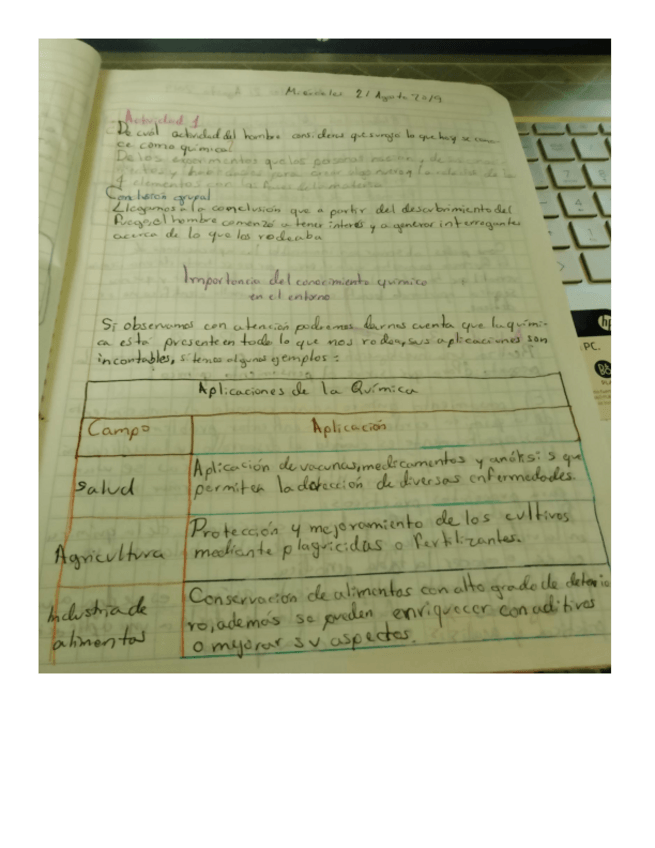 Miercoles 21 Agosto 2019
Actividad 1
De cual actividad del hombre consideras que surgió lo que hoy se cono-
ce como química?
De los experimentos que las personas
Conclusión grupal
Llegamos a la conclusión que a partir del descubrimiento del
fuego el hombre comenzó a tener interés y a generar interrogantes
acerca de lo que los rodeaba
Importancia del conocimiento químico
en el entorno
Si observamos con atención podremos darnos cuenta que la quími-
ca está presente en todo lo que nos rodea, sus aplicaciones son
incontables, algunos ejemplos:
Aplicaciones de la Química
Campo
Aplicación
Salud
Aplicación de vacunas, medicamentos y análisis que
permiten la detección de diversas enfermedades.
Agricultura
Protección y mejoramiento de los cultivos
mediante plagicidas o fertilizantes.
Industria de
alimentos
Conservación de alimentos con alto grado de deterio
ro, además se pueden enriquecer con aditivos
o mejorar su aspectos.
hp
PC.